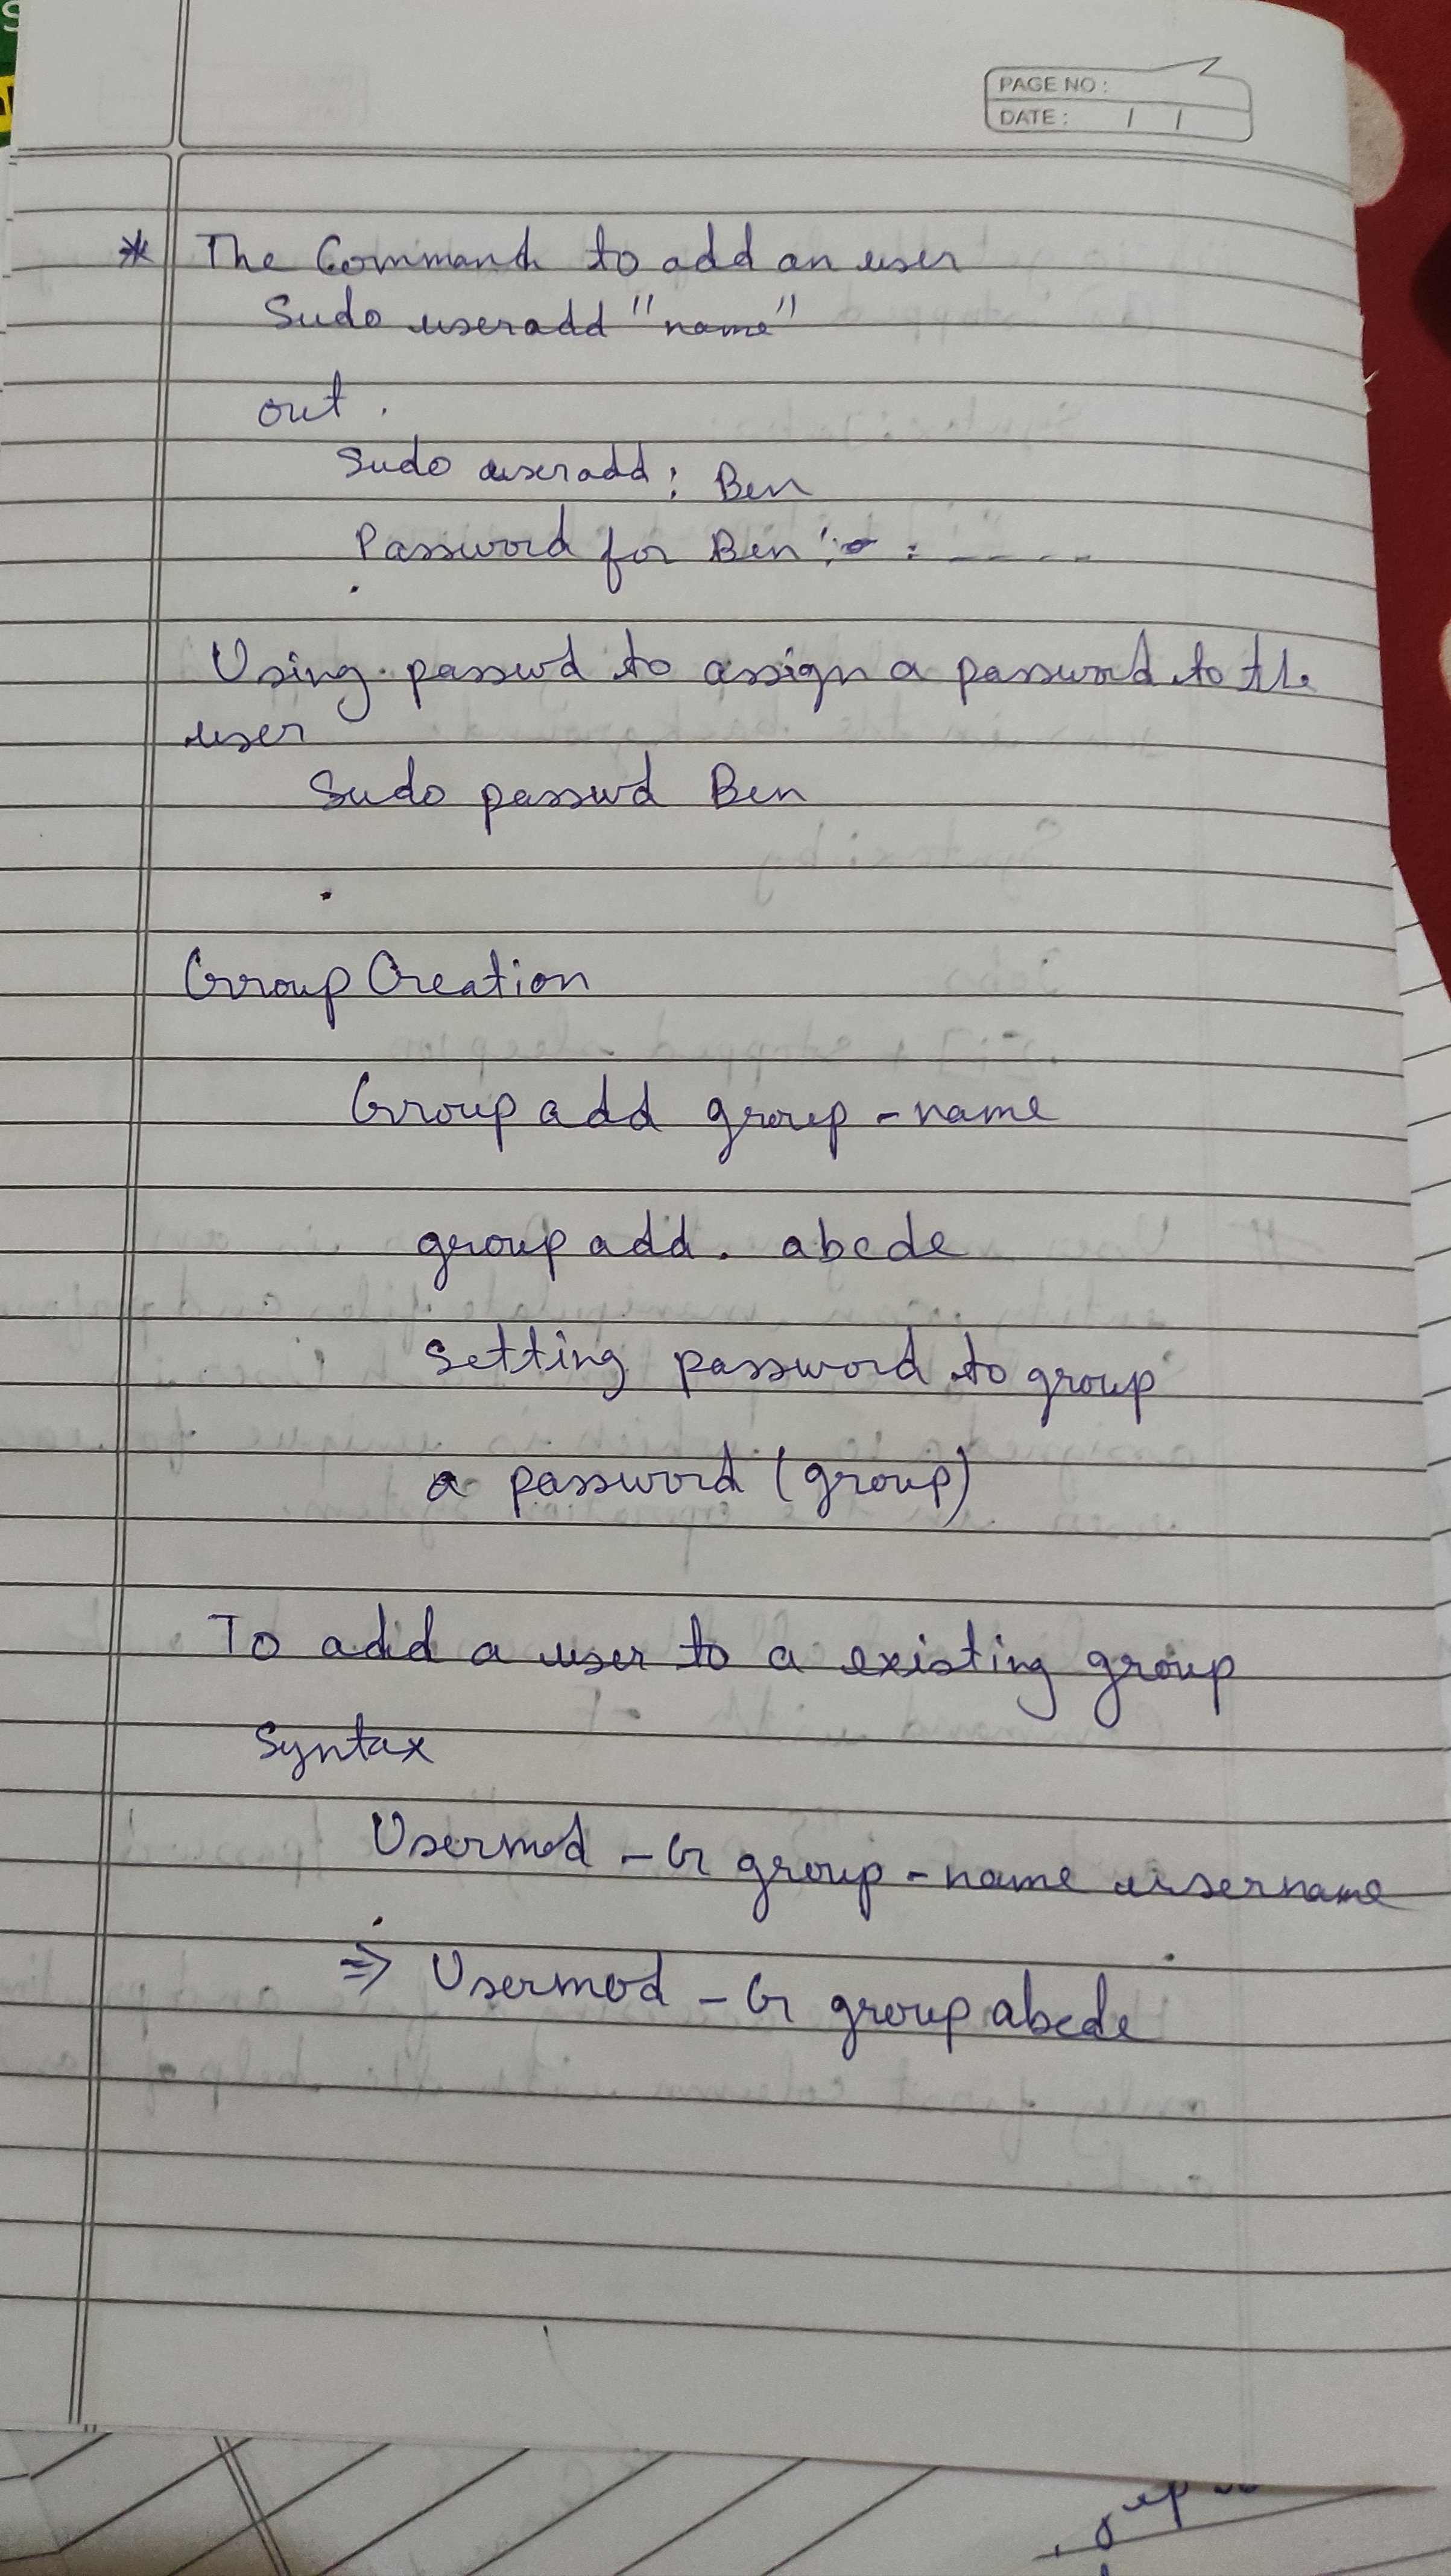 PAGE NO :
DATE : / /
* The Command to add an user
Sudo useradd "name"
out .
Sudo useradd : Ben
Password for Ben : - : - - - -
Using passwd to assign a password to the
user
Sudo passwd Ben
Group Creation
Group add group - name
group add . abcde
Setting password to group
a password (group)
To add a user to a existing group
Syntax
Usermod - G group - name username
⇒ Usermod - G group abcde